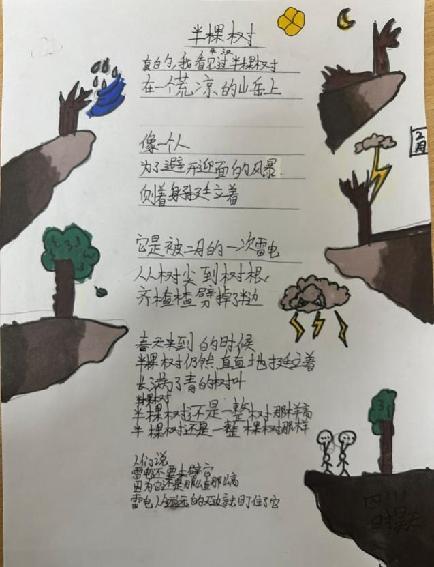 半棵树
牛汉
真的，我看见过半棵树
在一个荒凉的山丘上
像一个人
为了避开迎面的风暴
侧着身子挺立着
它是被二月的一次雷电
从树尖到树根
齐楂楂劈掉了半边
春天来到的时候
半棵树仍然直直地挺立着
长满了青的树叶
半棵树
半棵树还是一整树那样高
半棵树还是一整棵树那样
人们说
雷电还要来劈它
因为它还是那么直那么高
雷电从远远的天边就盯住了它
二月